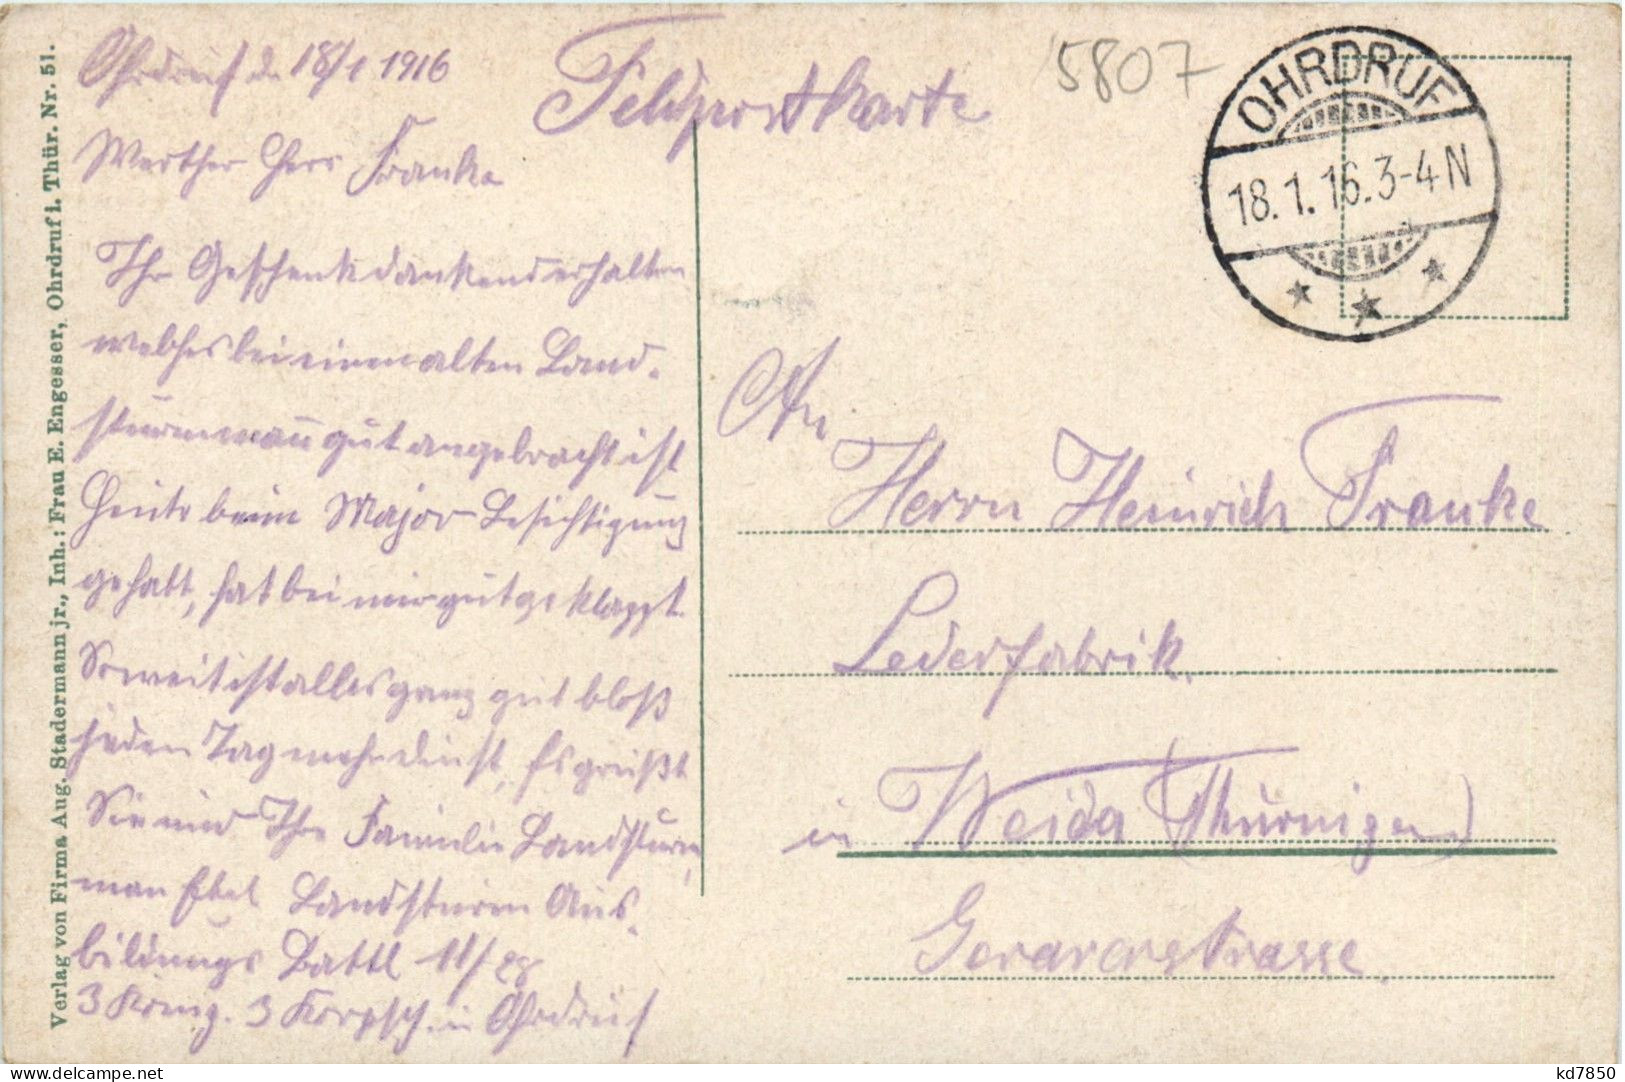 Ohrdruf d. 18/1 1916
Werther Herr Franke
Ihr Geschenk dankend erhalten
welches bei einem alten Land-
sturmmann gut angebracht ist
Heute beim Major Besichtigung
gehabt, hat bei mir gut geklappt.
Soweit ist alles ganz gut bloß
jeden Tag mehr dinst, Es grüßt
Sie und Ihre Familie Landsturm
man Ebel Landsturm Aus-
bildungs Battl 11/
3 Komp. 3 Korpsch. in Ohrdruf
Feldpostkarte
5807
OHRDRUF
18.1.16.3-4N
An
Herrn Heinrich Franke
Lederfabrik.
in Weida (Thüringen)
Geraerstrasse
Verlag von Firma Aug. Stadermann jr., Inh.: Frau E. Engesser, Ohrdruf i. Thür. Nr. 51.
kd7850